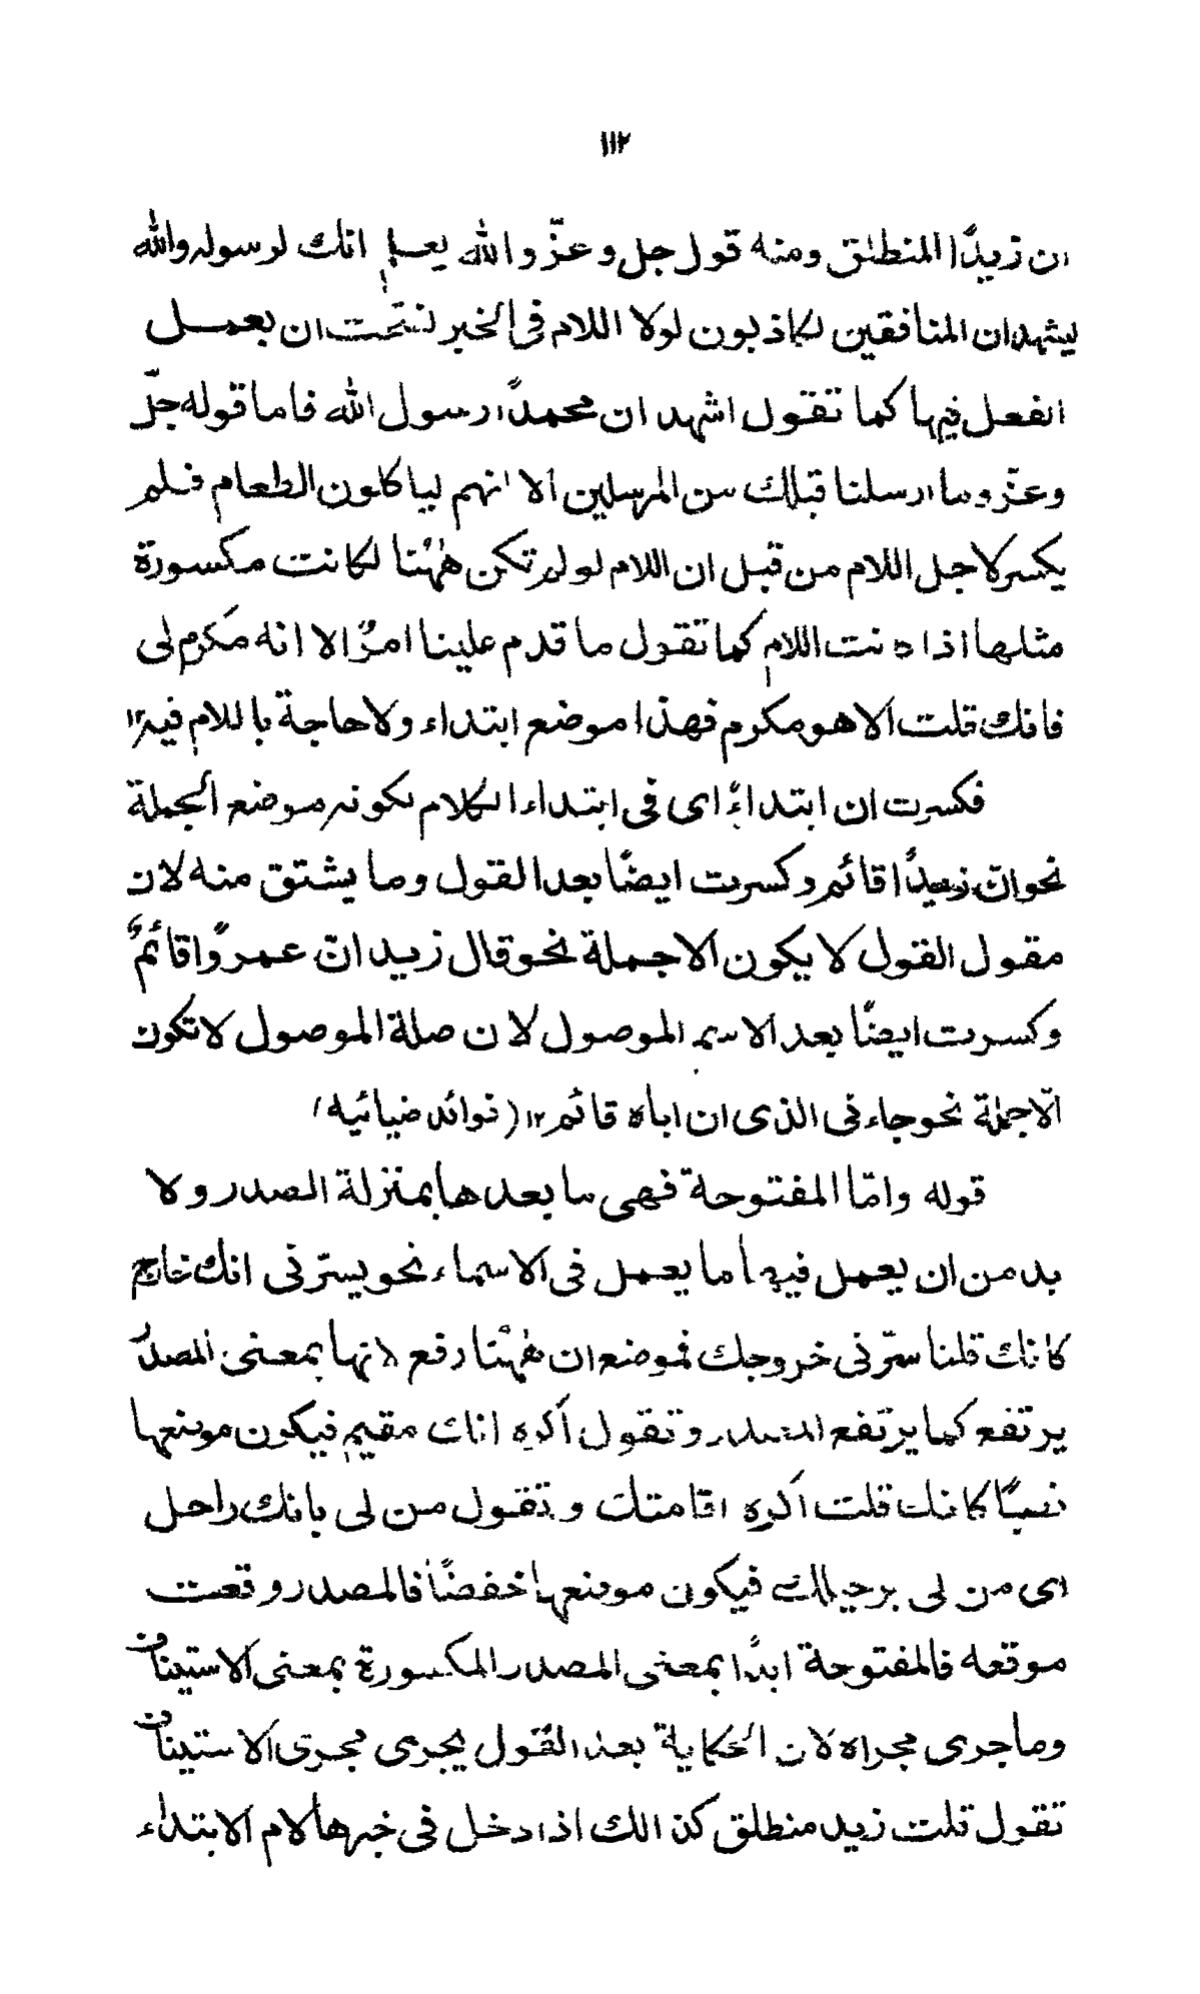 ١١٢
ان زيدًا المنطلق ومنه قول جل وعزّ والله يعلم انك لرسوله والله
ليشهد ان المنافقين لكاذبون لولا اللام فى الخبر لفتحت ان بعمل
الفعل فيها كما تقول اشهد ان محمدًا رسول الله فاما قوله جلّ
وعزّ وما ارسلنا قبلك من المرسلين الا انهم لياكلون الطعام فلم
يكسر لاجل اللام من قبل ان اللام لو لم تكن ههُنا لكانت مكسورة
مثلها اذا كانت اللام كما تقول ما قدم علينا امرٌ الا انه مَكرم لى
فانك قلت الا هو مكرم فهذا موضع ابتداء ولا حاجة باللام فيه ١٢
فكسرت ان ابتداءً اى فى ابتداء الكلام لكونه موضع الجملة
نحو انّ زيدًا قائم وكسرت ايضًا بعد القول وما يشتق منه لان
مقول القول لا يكون الا جملة نحو قال زيد انّ عمروًا قائمٌ
وكسرت ايضًا بعد الاسم الموصول لان صلة الموصول لا تكون
الّا جملة نحو جاء فى الذى ان اباه قائم ١٢ (فوائد ضيائيه)
قوله وامّا المفتوحة فهى ما بعدها بمنزلة المصدر ولا
بد من ان يعمل فيها ما يعمل فى الاسماء نحو يسرّنى انك خارج
كانك قلنا سرّنى خروجك فموضع ان ههُنا رفع لانها بمعنى المصدر
يرتفع كما يرتفع المصدر وتقول أكره انك مقيم فيكون موضعها
نصبًا كانك قلت أكره اقامتك وتقول من لى بانك راحل
اى من لى برحيلك فيكون موضعها خفضًا فالمصدر وقعت
موقعه فالمفتوحة ابدًا بمعنى المصدر المكسورة بمعنى الاستيناف
وما جرى مجراه لان الحكاية بعد القول يجرى مجرى الاستيناف
تقول قلت زيد منطلق كذالك اذا دخل فى خبرها لام الابتداء